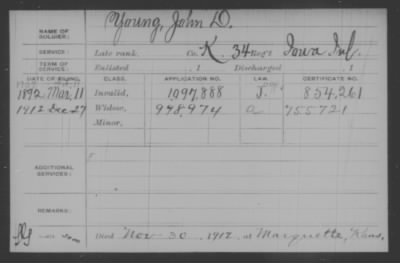 NAME OF SOLDIER: Young, John D.
SERVICE: Late rank, Co. K 34 Reg't Iowa Inf.
TERM OF SERVICE: Enlisted , 1 Discharged , 1
DATE OF FILING. CLASS. APPLICATION NO. LAW. CERTIFICATE NO.
1892 Mar. 11 Invalid, 1,097,888 J. 854,261
1912 Dec 27 Widow, 998,974 a 755721
Minor,
ADDITIONAL SERVICES:
REMARKS:
Died Nov. 30, 1912, at Marquette, Kans.